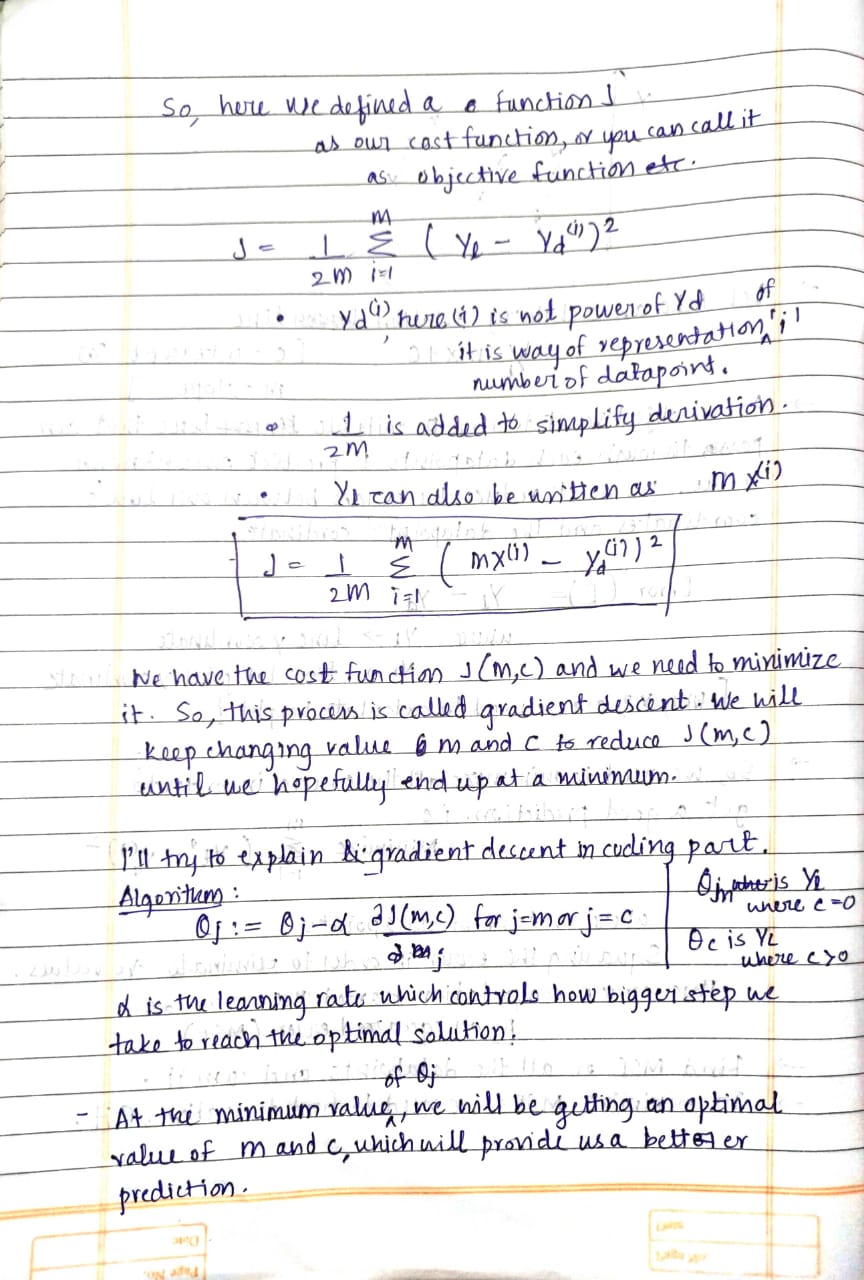 So, here we defined a function J
as our cost function, or you can call it
as objective function etc.
J = 1/2m Σ_{i=1}^{m} ( Yl - Yd^(i) )^2
• Yd^(i), here (i) is not power of Yd
it is way of representation of 'i'
number of datapoint.
• 1/2m is added to simplify derivation.
• Yl can also be written as m x^(i)
J = 1/2m Σ_{i=1}^{m} ( mx^(i) - Yd^(i) )^2
We have the cost function J(m,c) and we need to minimize
it. So, this process is called gradient descent. We will
keep changing value m and c to reduce J(m,c)
until we hopefully end up at a minimum.
I'll try to explain gradient descent in coding part.
Algoritum :
θj := θj - α ∂J(m,c)/∂mj for j=m or j=c
θm is Yl
where c=0
θc is YL
where c>0
α is the learning rate which controls how bigger step we
take to reach the optimal solution.
- At the minimum value of θj, we will be getting an optimal
value of m and c, which will provide us a better
prediction.